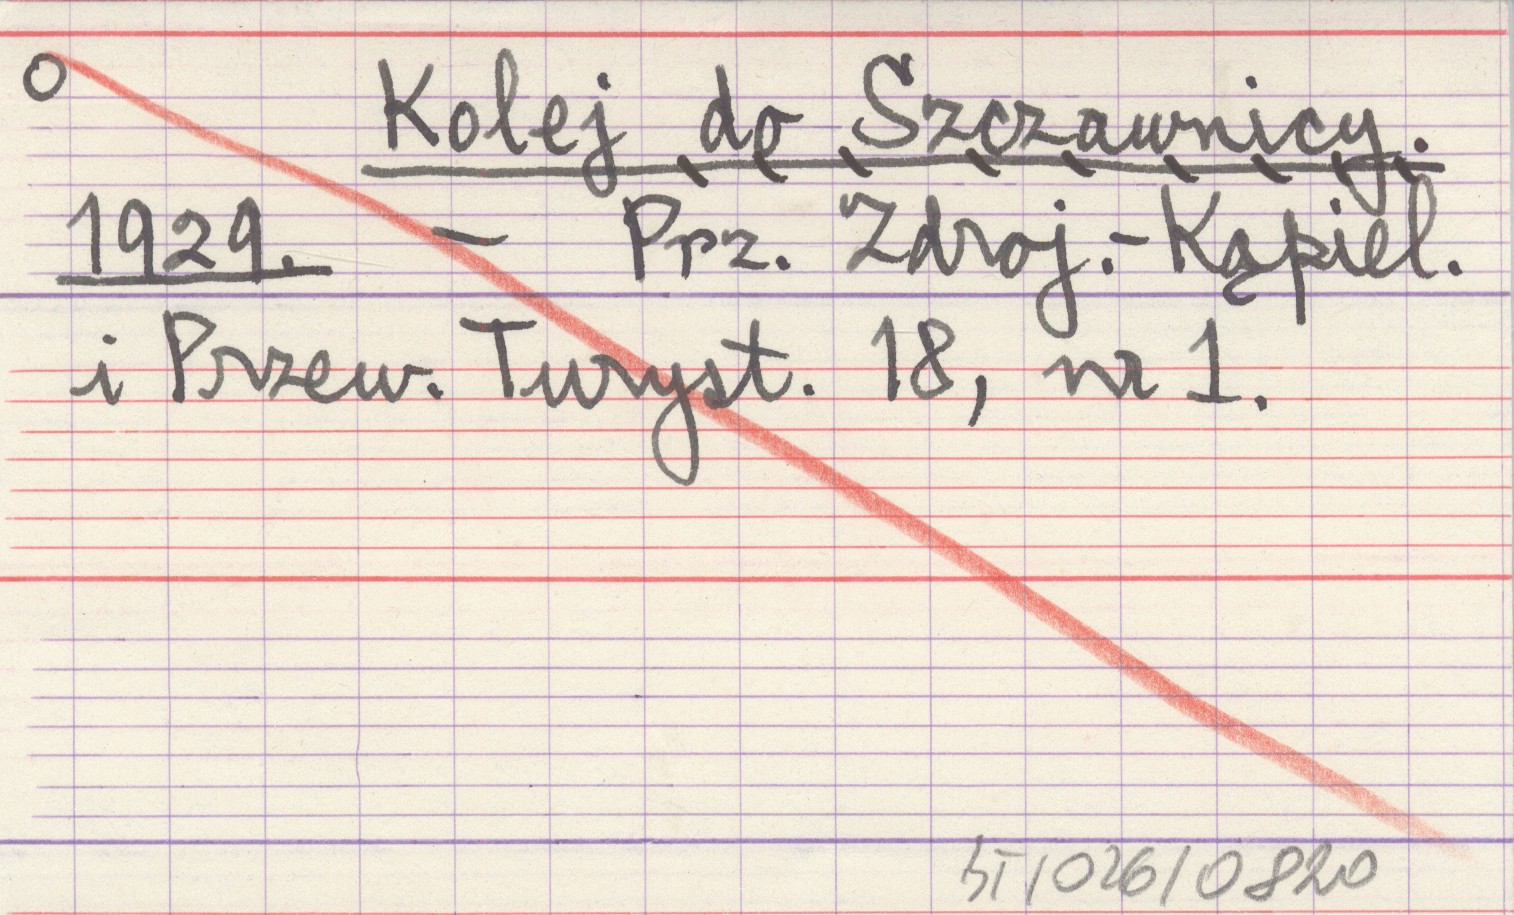 O Kolej do Szczawnicy.
1929. — Prz. Zdroj.-Kąpiel.
i Przew. Turyst. 18, nr 1.
ST/026/0820